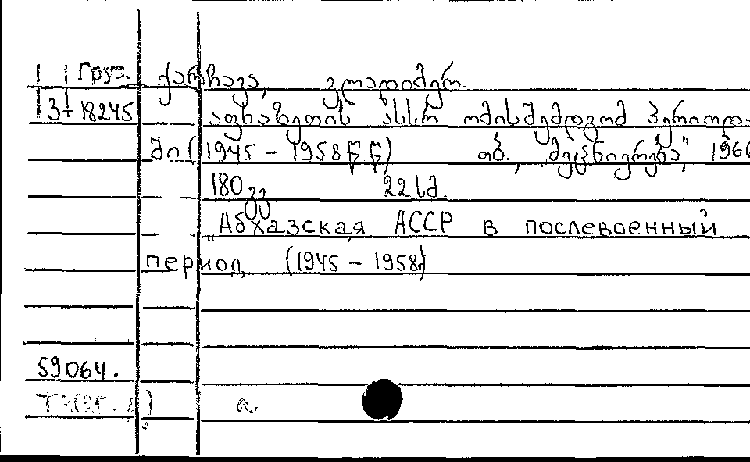 Груз. ქარჩავა, ვლადიმერ.
3-18245 აფხაზეთის ასსრ ომისშემდგომ პერიოდა
ში (1945 - 1958 წწ) თბ., "მეცნიერება", 196
180 გვ 22 სმ.
"Абхазская АССР в послевоенный
период (1945 - 1958)
59064.